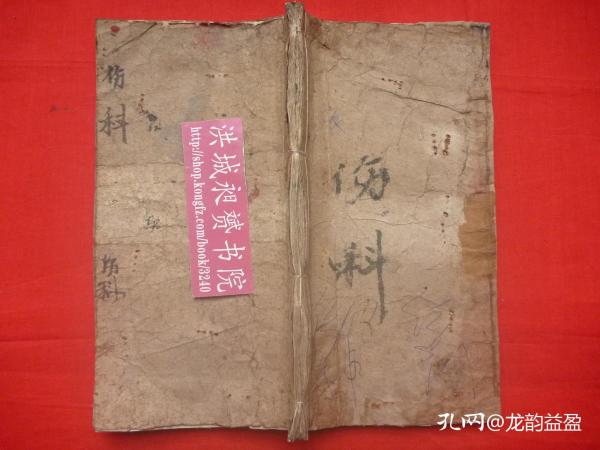 伤科
伤科
洪城昶赟书院
http://shop.kongfz.com/book/3240
伤
科
孔网@龙韵益盈